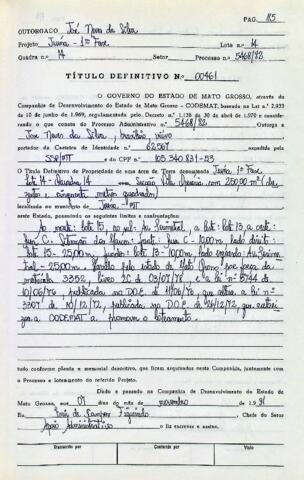 PAG. 115
OUTORGADO José Nava da Silva
Projeto Juína - 1ª Fase Lote n.º 14
Quadra n.º 14 Setor Processo n.º 5468/82
TÍTULO DEFINITIVO N.º 00461
O GOVERNO DO ESTADO DE MATO GROSSO, através da
Companhia de Desenvolvimento do Estado de Mato Grosso - CODEMAT, baseado na Lei n.º 2.933
de 10 de junho de 1969, regulamentada pelo Decreto n.º 1.138 de 30 de abril de 1970 e considerando
o que consta do Processo Administrativo n.º 5468/82 Outorga a
José Nava da Silva, brasileiro,
portador da Carteira de Identidade n.º 62.567 expedida pela
SSP/MT e do CPF n.º 105 340 831-53
O Título Definitivo de Propriedade de uma área de Terra denominada Juína 1ª Fase
Lote 14 - Quadra 14 com 250,00 m² (du
zentos e cinquenta metros quadrados)
localizada no município de Juína - MT
neste Estado, possuindo os seguintes limites e confrontações:
Ao norte: lote 15, ao sul: Av. a leste: lote 13 a oeste:
Rua C. frente: Rua C - 10,00m lado direito:
lote 15 - 25,00m fundos: lote 13 - 10,00m lado esquerdo: Av.
25,00m
matrícula 3352, livro 2C de 03/07/78 e a lei n.º 3744 de
10/06/76 publicada no D.O.E. de 11/06/76, que altera a lei n.º
3307 de 18/12/72, publicada no D.O.E. de 26/12/72, que
a CODEMAT a promover o loteamento
tudo conforme planta e memorial descritivo, que ficam arquivados nesta Companhia, juntamente com
o Processo e loteamento do referido Projeto.
Dado e passado na Companhia de Desenvolvimento do Estado de
Mato Grosso, aos 07 dias do mês de novembro de 1.991
Eu, de Campos Figueiredo, Chefe do Setor
Apoio Administrativo o fiz escrever e assino.
Transcrito por Conferido por Visto